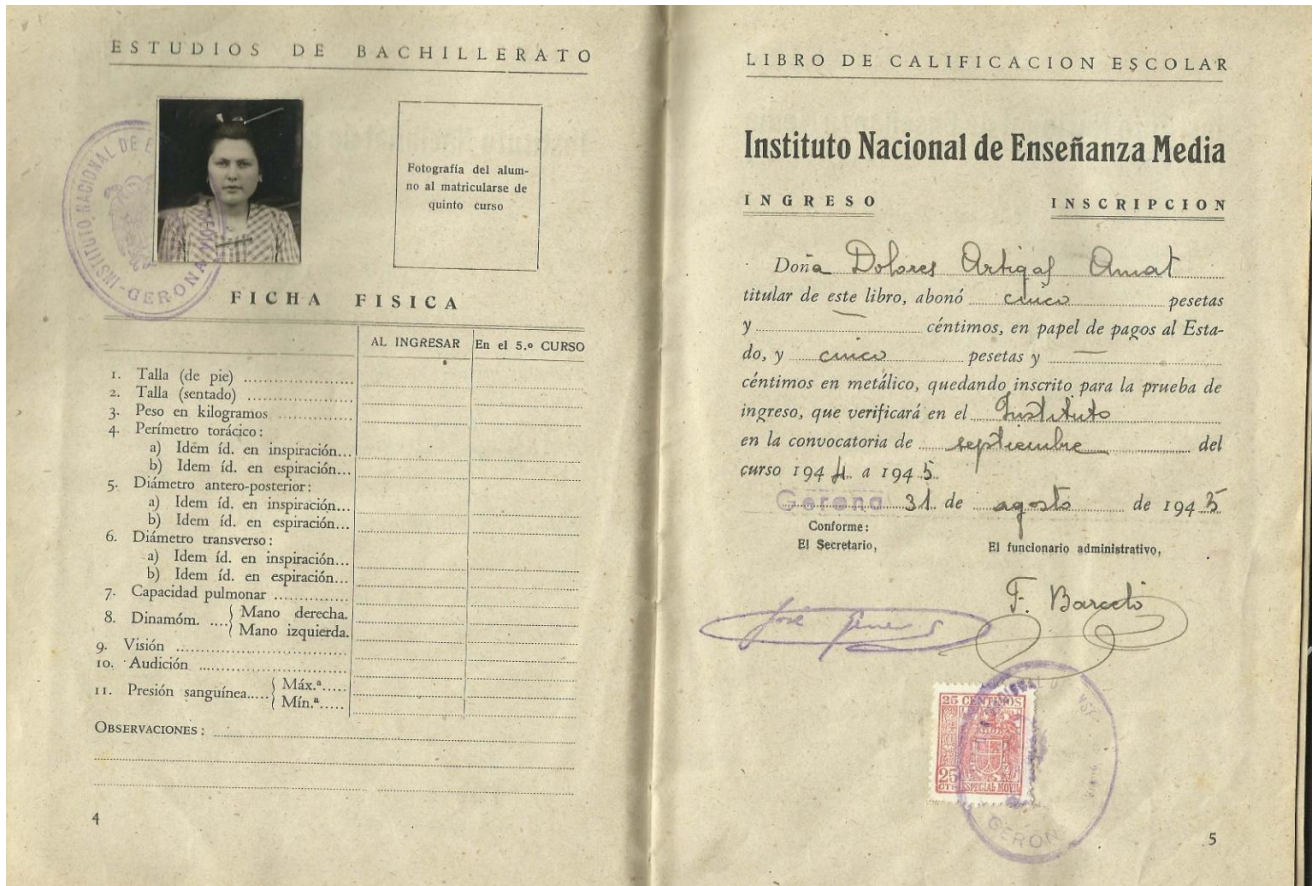 ESTUDIOS DE BACHILLERATO
INSTITUTO NACIONAL DE
GERONA
Fotografía del alum-
no al matricularse de
quinto curso
FICHA FISICA
AL INGRESAR En el 5.º CURSO
1. Talla (de pie)
2. Talla (sentado)
3. Peso en kilogramos
4. Perímetro torácico:
a) Idem íd. en inspiración...
b) Idem íd. en espiración...
5. Diámetro antero-posterior:
a) Idem íd. en inspiración...
b) Idem íd. en espiración...
6. Diámetro transverso:
a) Idem íd. en inspiración...
b) Idem íd. en espiración...
7. Capacidad pulmonar
8. Dinamóm. .... Mano derecha.
Mano izquierda.
9. Visión
10. Audición
11. Presión sanguínea..... Máx.ª.....
Mín.ª.....
OBSERVACIONES:
4
LIBRO DE CALIFICACION ESCOLAR
Instituto Nacional de Enseñanza Media
INGRESO INSCRIPCION
Doña Dolores Artigas Amat
titular de este libro, abonó cinco pesetas
y — céntimos, en papel de pagos al Esta-
do, y cinco pesetas y —
céntimos en metálico, quedando inscrito para la prueba de
ingreso, que verificará en el Instituto
en la convocatoria de septiembre del
curso 1944 a 1945
Gerona 31 de agosto de 1945
Conforme:
El Secretario, El funcionario administrativo,
F. Barceló
José
25 CENTIMOS
25
CTS ESPECIAL MOVIL
GERONA
5